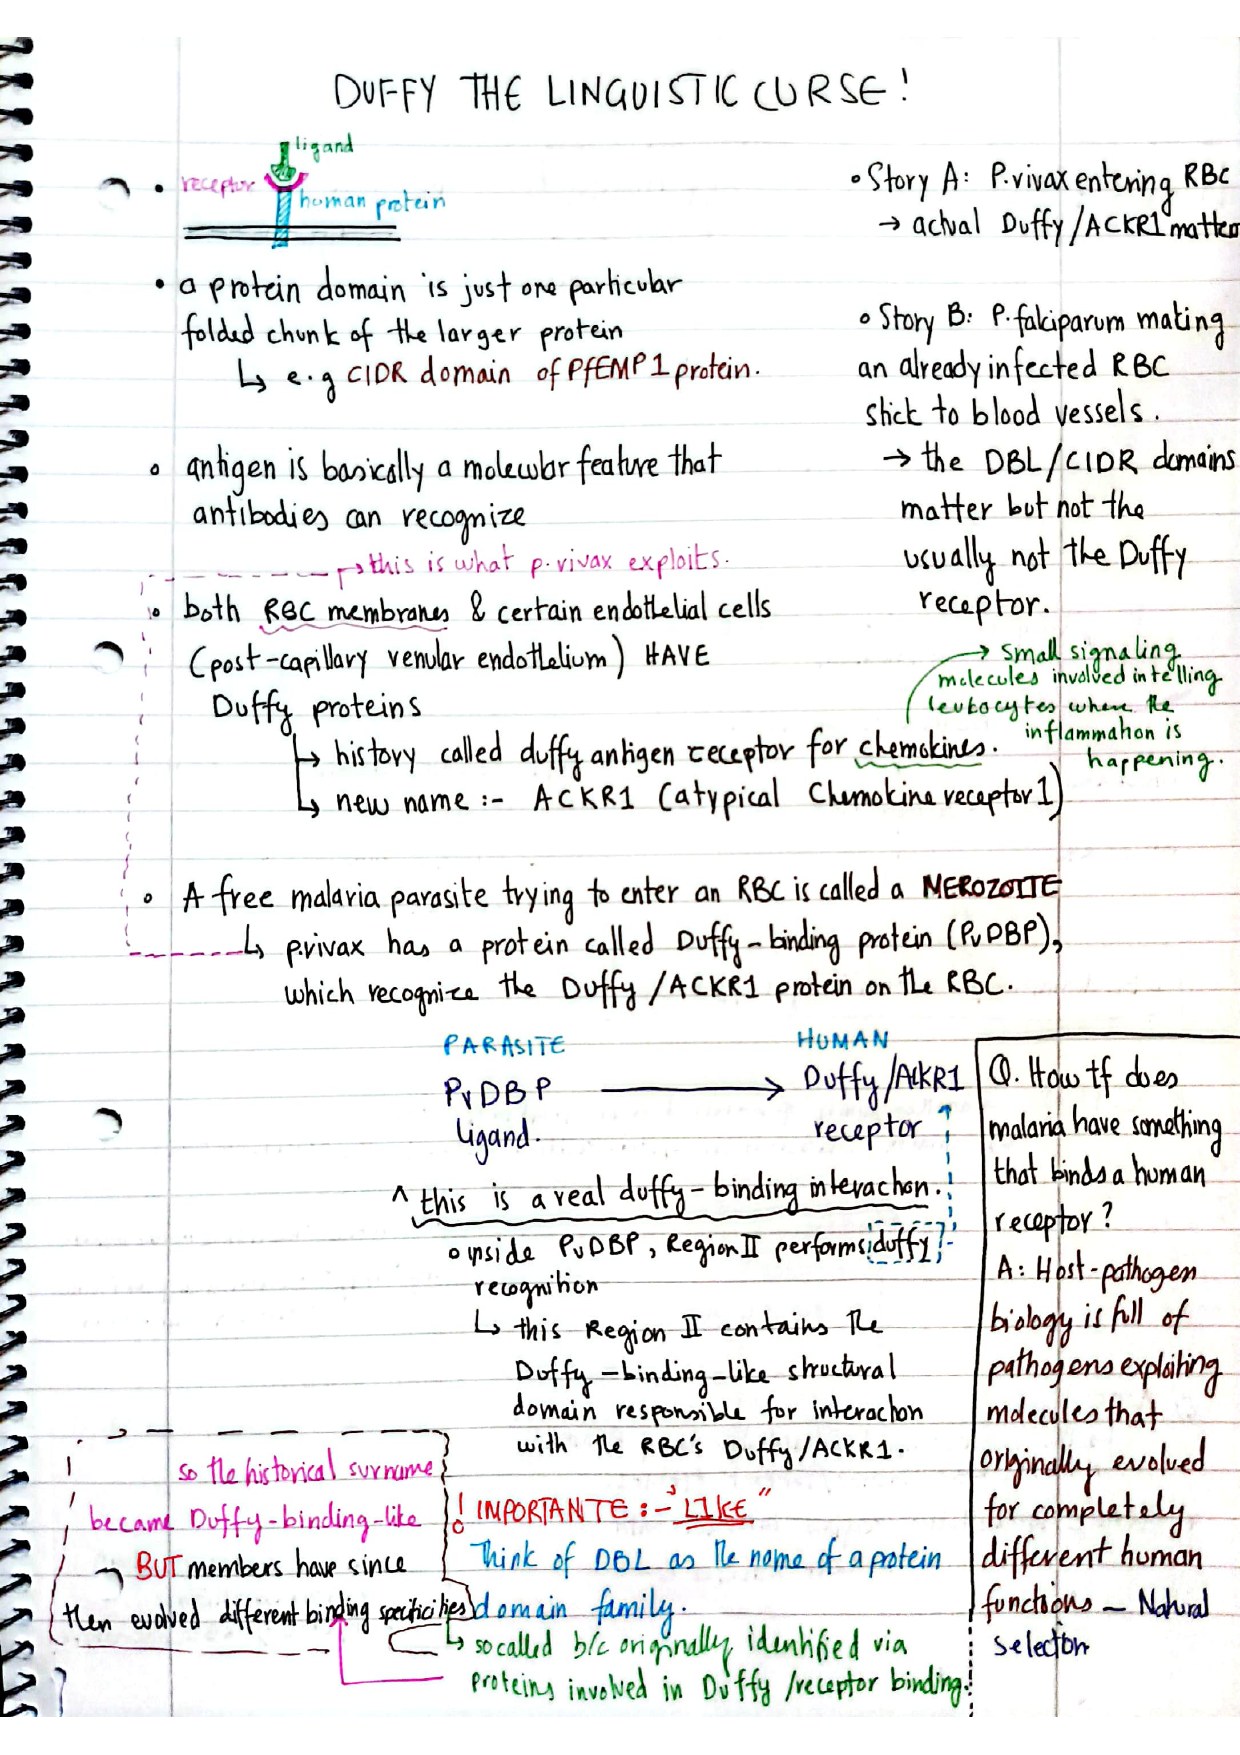 DUFFY THE LINGUISTIC CURSE!
ligand
receptor
human protein
• a protein domain is just one particular
folded chunk of the larger protein
↳ e.g CIDR domain of PfEMP1 protein.
• antigen is basically a molecular feature that
antibodies can recognize
→ this is what p.vivax exploits.
• both RBC membranes & certain endothelial cells
(post-capillary venular endothelium) HAVE
Duffy proteins
↳ history called duffy antigen receptor for chemokines.
↳ new name :- ACKR1 (atypical Chemokine receptor 1)
→ small signaling
molecules involved in telling
leukocytes where the
inflammation is
happening.
• Story A: P.vivax entering RBC
→ actual Duffy/ACKR1 matters
• Story B: P.falciparum making
an already infected RBC
stick to blood vessels.
→ the DBL/CIDR domains
matter but not the
usually not the Duffy
receptor.
• A free malaria parasite trying to enter an RBC is called a MEROZOITE
↳ p.vivax has a protein called Duffy-binding protein (PvDBP),
which recognize the Duffy/ACKR1 protein on the RBC.
PARASITE HUMAN
PvDBP → Duffy/ACKR1
ligand. receptor
^ this is a real duffy-binding interaction.
• inside PvDBP, Region II performs duffy
recognition
↳ this Region II contains the
Duffy-binding-like structural
domain responsible for interaction
with the RBC's Duffy/ACKR1.
! IMPORTANTE :- "LIKE"
Think of DBL as the name of a protein
domain family.
↳ so called b/c originally identified via
proteins involved in Duffy/receptor binding.
so the historical surname
became Duffy-binding-like
BUT members have since
then evolved different binding specificities
Q. How tf does
malaria have something
that binds a human
receptor?
A: Host-pathogen
biology is full of
pathogens exploiting
molecules that
originally evolved
for completely
different human
functions – Natural
selection